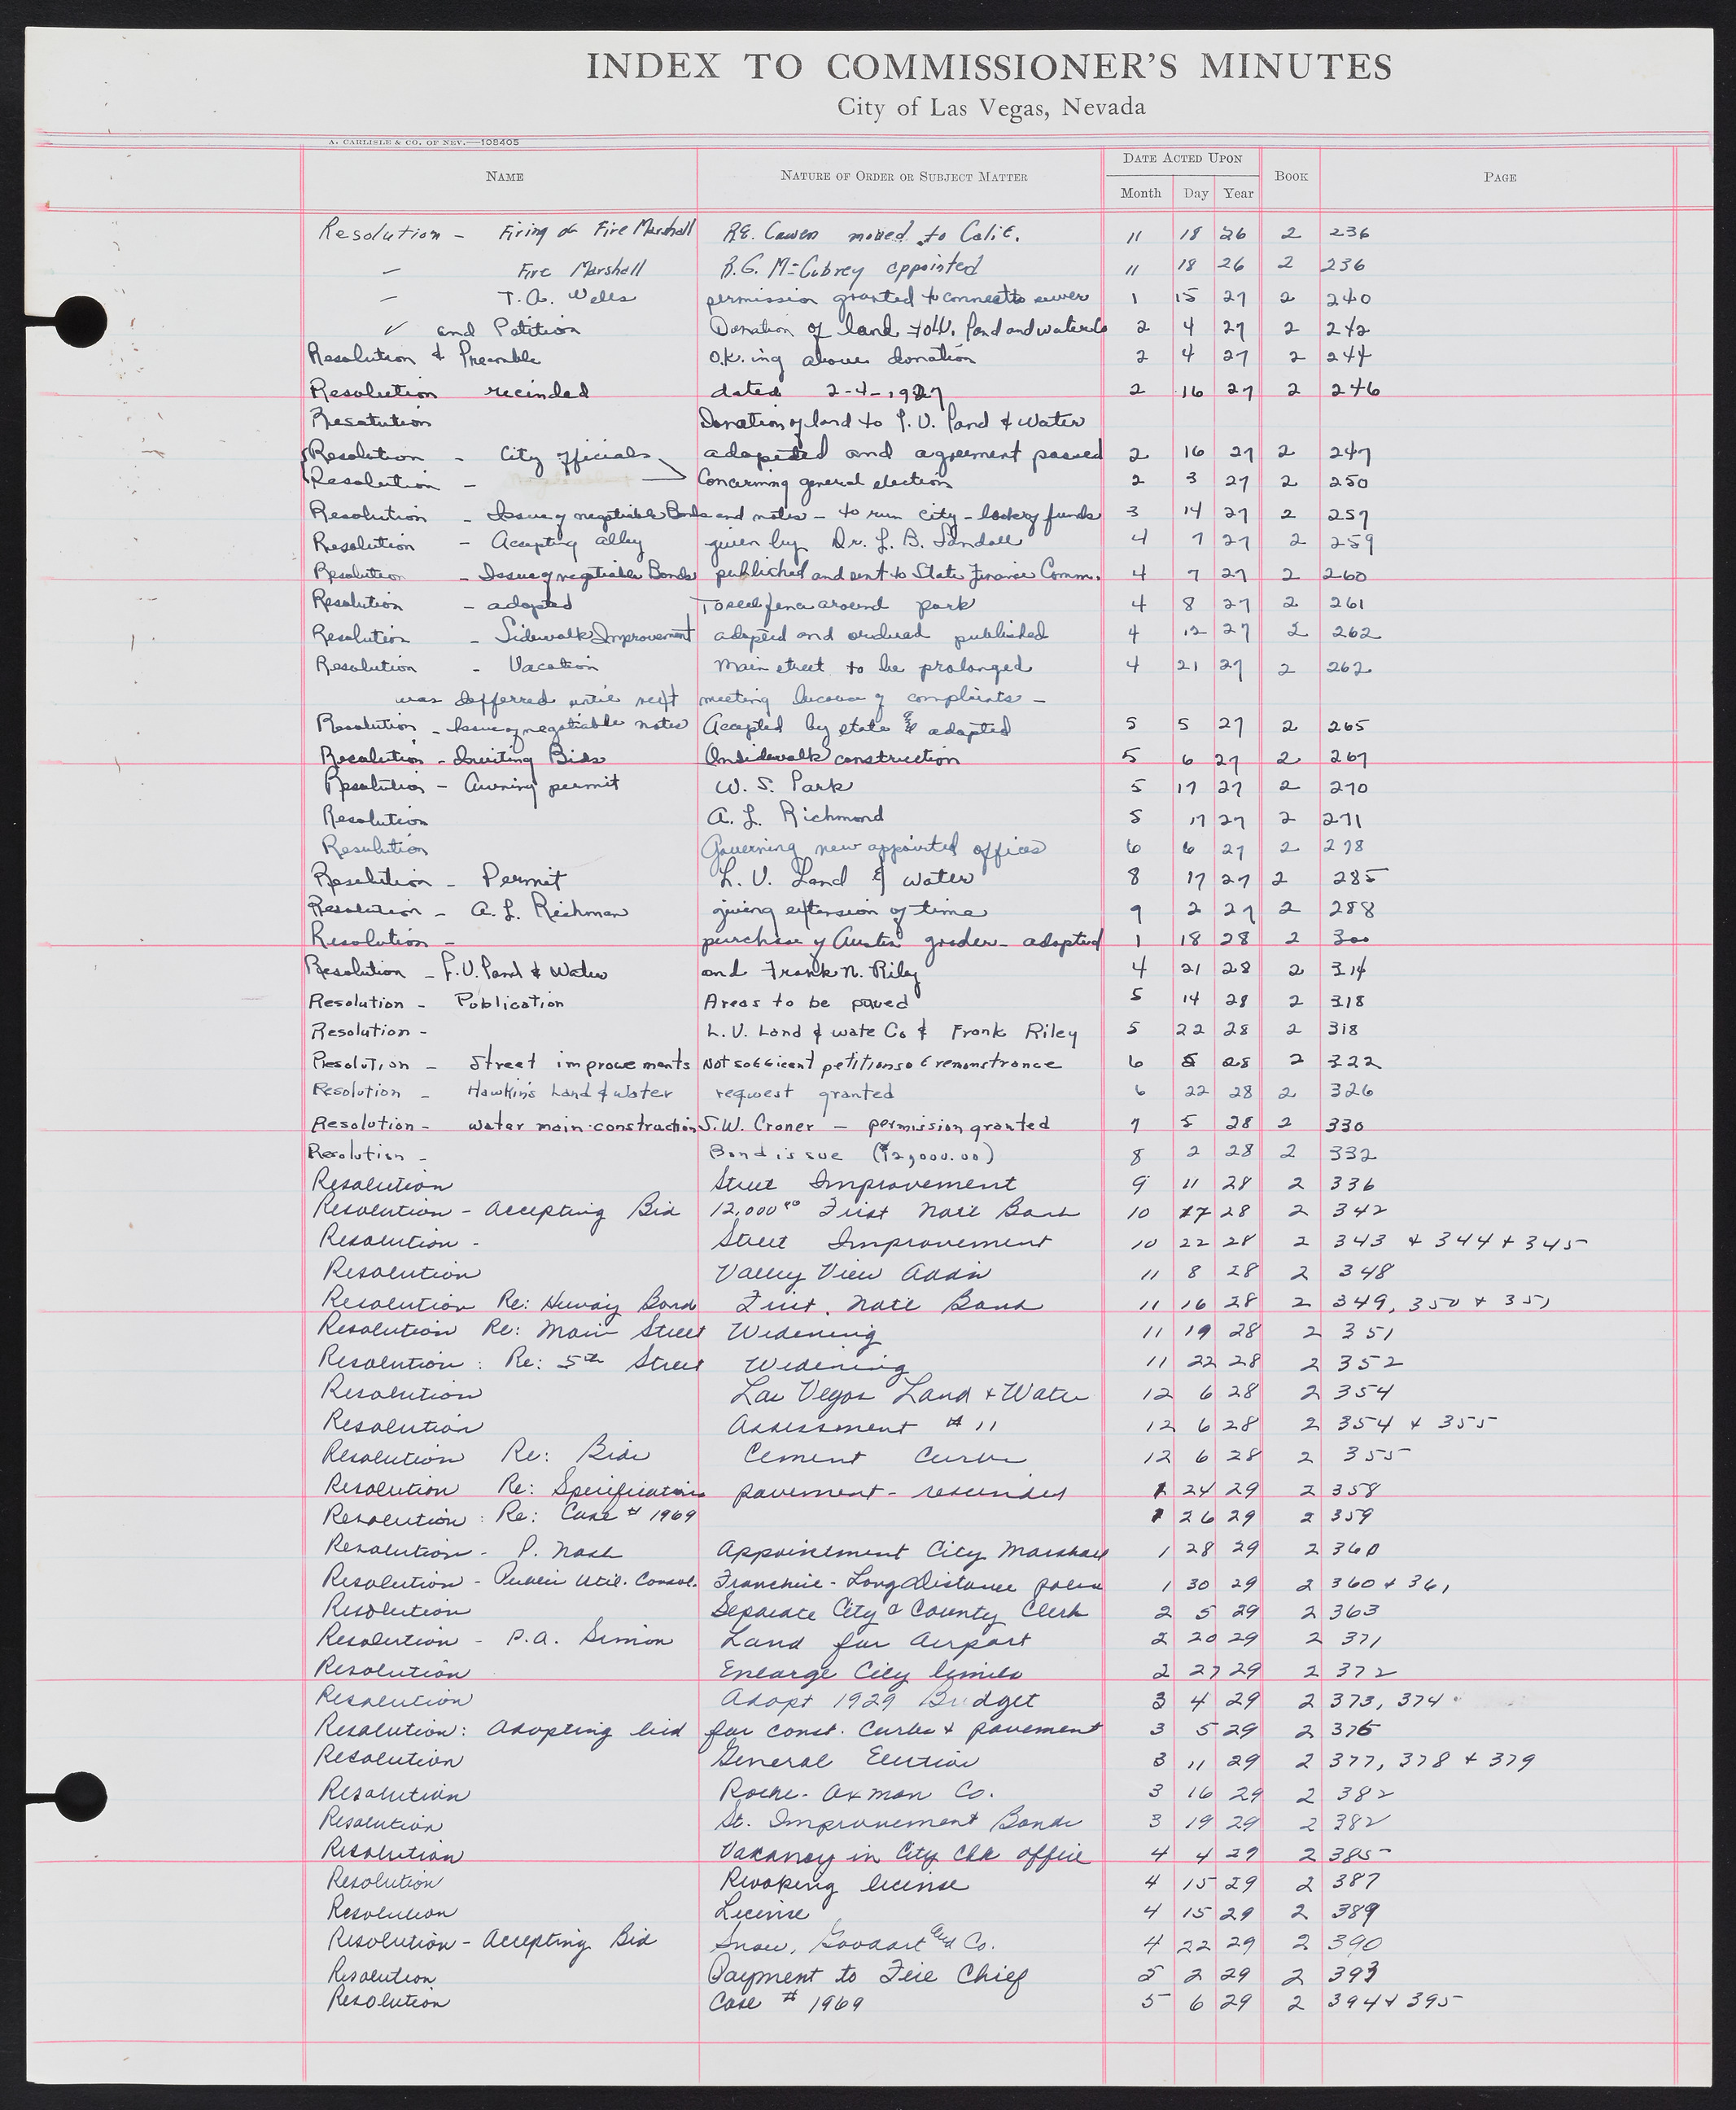 INDEX TO COMMISSIONER'S MINUTES
City of Las Vegas, Nevada
A. CARLISLE & CO. OF NEV.—108405
NAME NATURE OF ORDER OR SUBJECT MATTER DATE ACTED UPON BOOK PAGE
Month Day Year
Resolution - Firing of Fire Marshall R.E. Cawen moved to Calif. 11 18 26 2 236
— Fire Marshall R.G. McCubrey appointed 11 18 26 2 236
— T.A. Wells permission granted to connect to sewer 1 15 27 2 240
✓ and Patition Donation of land to L.V. Land and water Co 2 4 27 2 242
Resolution & Preamble O.K.ing above donation 2 4 27 2 244
Resolution recinded dated 2-4-1927 2 16 27 2 246
Resolution Donation of land to L.V. Land & Water
Resolution - City officials adopeted and agreement passed 2 16 27 2 247
Resolution - Concerning general election 2 3 27 2 250
Resolution - Issue of negotiable Bonds and notes - to run city - lack of funds 3 14 27 2 257
Resolution - Accepting alley given by Dr. L.B. 4 7 27 2 259
Resolution - Issue of negotiable Bonds published and sent to State Finance Comm. 4 7 27 2 260
Resolution - adopted To sell fence around park 4 8 27 2 261
Resolution - Sidewalk Improvement adopted and ordered published 4 12 27 2 262
Resolution - Vacation Main street to be prolonged 4 21 27 2 262
was defferred until next meeting because of complaints -
Resolution - Issue of negotiable notes Accepted by state & adopted 5 5 27 2 265
Resolution - Inviting Bids On sidewalk construction 5 6 27 2 267
Resolution - Awning permit W. S. Park 5 17 27 2 270
Resolution A. L. Richmond 5 17 27 2 271
Resolution Governing new appointed offices 6 6 27 2 278
Resolution - Permit L. V. Land & water 8 17 27 2 285
Resolution - A. L. Richman giving extension of time 9 2 27 2 288
Resolution - purchase of Austin grader - adopted 1 18 28 2 300
Resolution - L.V. Land & Water and Frank N. Riley 4 21 28 2 314
Resolution - Publication Areas to be paved 5 14 28 2 318
Resolution - L.V. Land & wate Co & Frank Riley 5 22 28 2 318
Resolution - Street improvements Not sofficent petitions of remonstrance 6 5 28 2 322
Resolution - Hawkins Land & Water reqwest granted 6 22 28 2 326
Resolution - water main construction S.W. Croner - permission granted 7 5 28 2 330
Resolution - Bond issue ($12,000.00) 8 2 28 2 332
Resolution Street Improvement 9 11 28 2 336
Resolution - Accepting Bid 12,000⁰⁰ First Nat'l Bank 10 17 28 2 342
Resolution - Street Improvement 10 22 28 2 343 + 344 + 345
Resolution Valley View Addn 11 8 28 2 348
Resolution Re: Hiway Bond First. Nat'l Bank 11 16 28 2 349, 350 + 351
Resolution Re: Main Street Widening 11 19 28 2 351
Resolution: Re: 5th Street Widening 11 22 28 2 352
Resolution Las Vegas Land + Water 12 6 28 2 354
Resolution Assessment # 11 12 6 28 2 354 + 355
Resolution Re: Bids Cement Curbs 12 6 28 2 355
Resolution Re: Specifications pavement - rescinded 1 24 29 2 358
Resolution: Re: Case # 1969 1 26 29 2 359
Resolution - P. Nash Appointment City Marshall 1 28 29 2 360
Resolution - Public Util. Consol. Franchise - Long Distance 1 30 29 2 360 + 361
Resolution Separate City & County Clerk 2 5 29 2 363
Resolution - P.A. Simon Land for Airport 2 20 29 2 371
Resolution Enlarge City limits 2 27 29 2 372
Resolution Adopt 1929 Budget 3 4 29 2 373, 374
Resolution: Adopting bid for const. Curbs + pavement 3 5 29 2 376
Resolution General Election 3 11 29 2 377, 378 + 379
Resolution Roche - Axman Co. 3 16 29 2 382
Resolution St. Improvement Bonds 3 19 29 2 382
Resolution Vacancy in City Clk office 4 4 29 2 385
Resolution Revoking license 4 15 29 2 387
Resolution License 4 15 29 2 389
Resolution - Accepting Bid Snow, Goodart and Co. 4 22 29 2 390
Resolution Payment to Fire Chief 5 2 29 2 393
Resolution Case # 1969 5 6 29 2 394 + 395